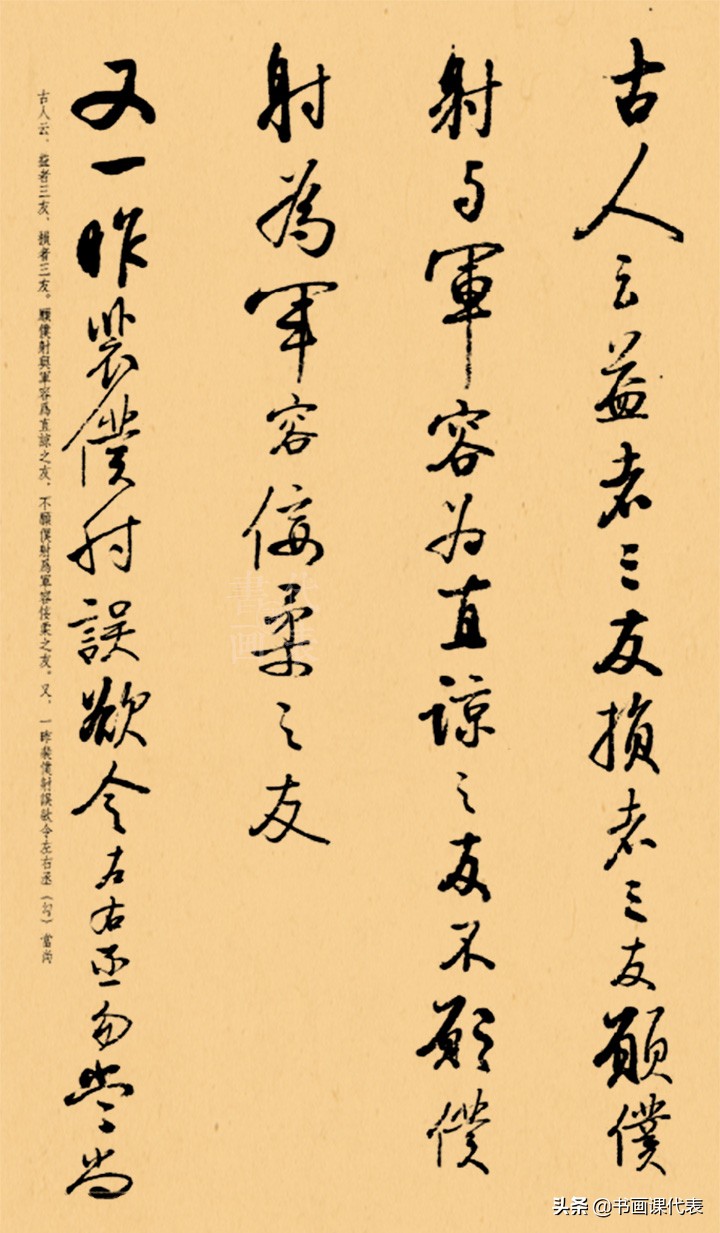 古人云益者三友損者三友願僕
射与軍容为直諒之友不願僕
射為軍容佞柔之友
又一昨裴僕射誤欲令左右丞勾當尚
古人云，益者三友，損者三友。願僕射與軍容爲直諒之友，不願僕射爲軍容佞柔之友。又，一昨裴僕射誤欲令左右丞（勾）當尚
头条 @书画课代表